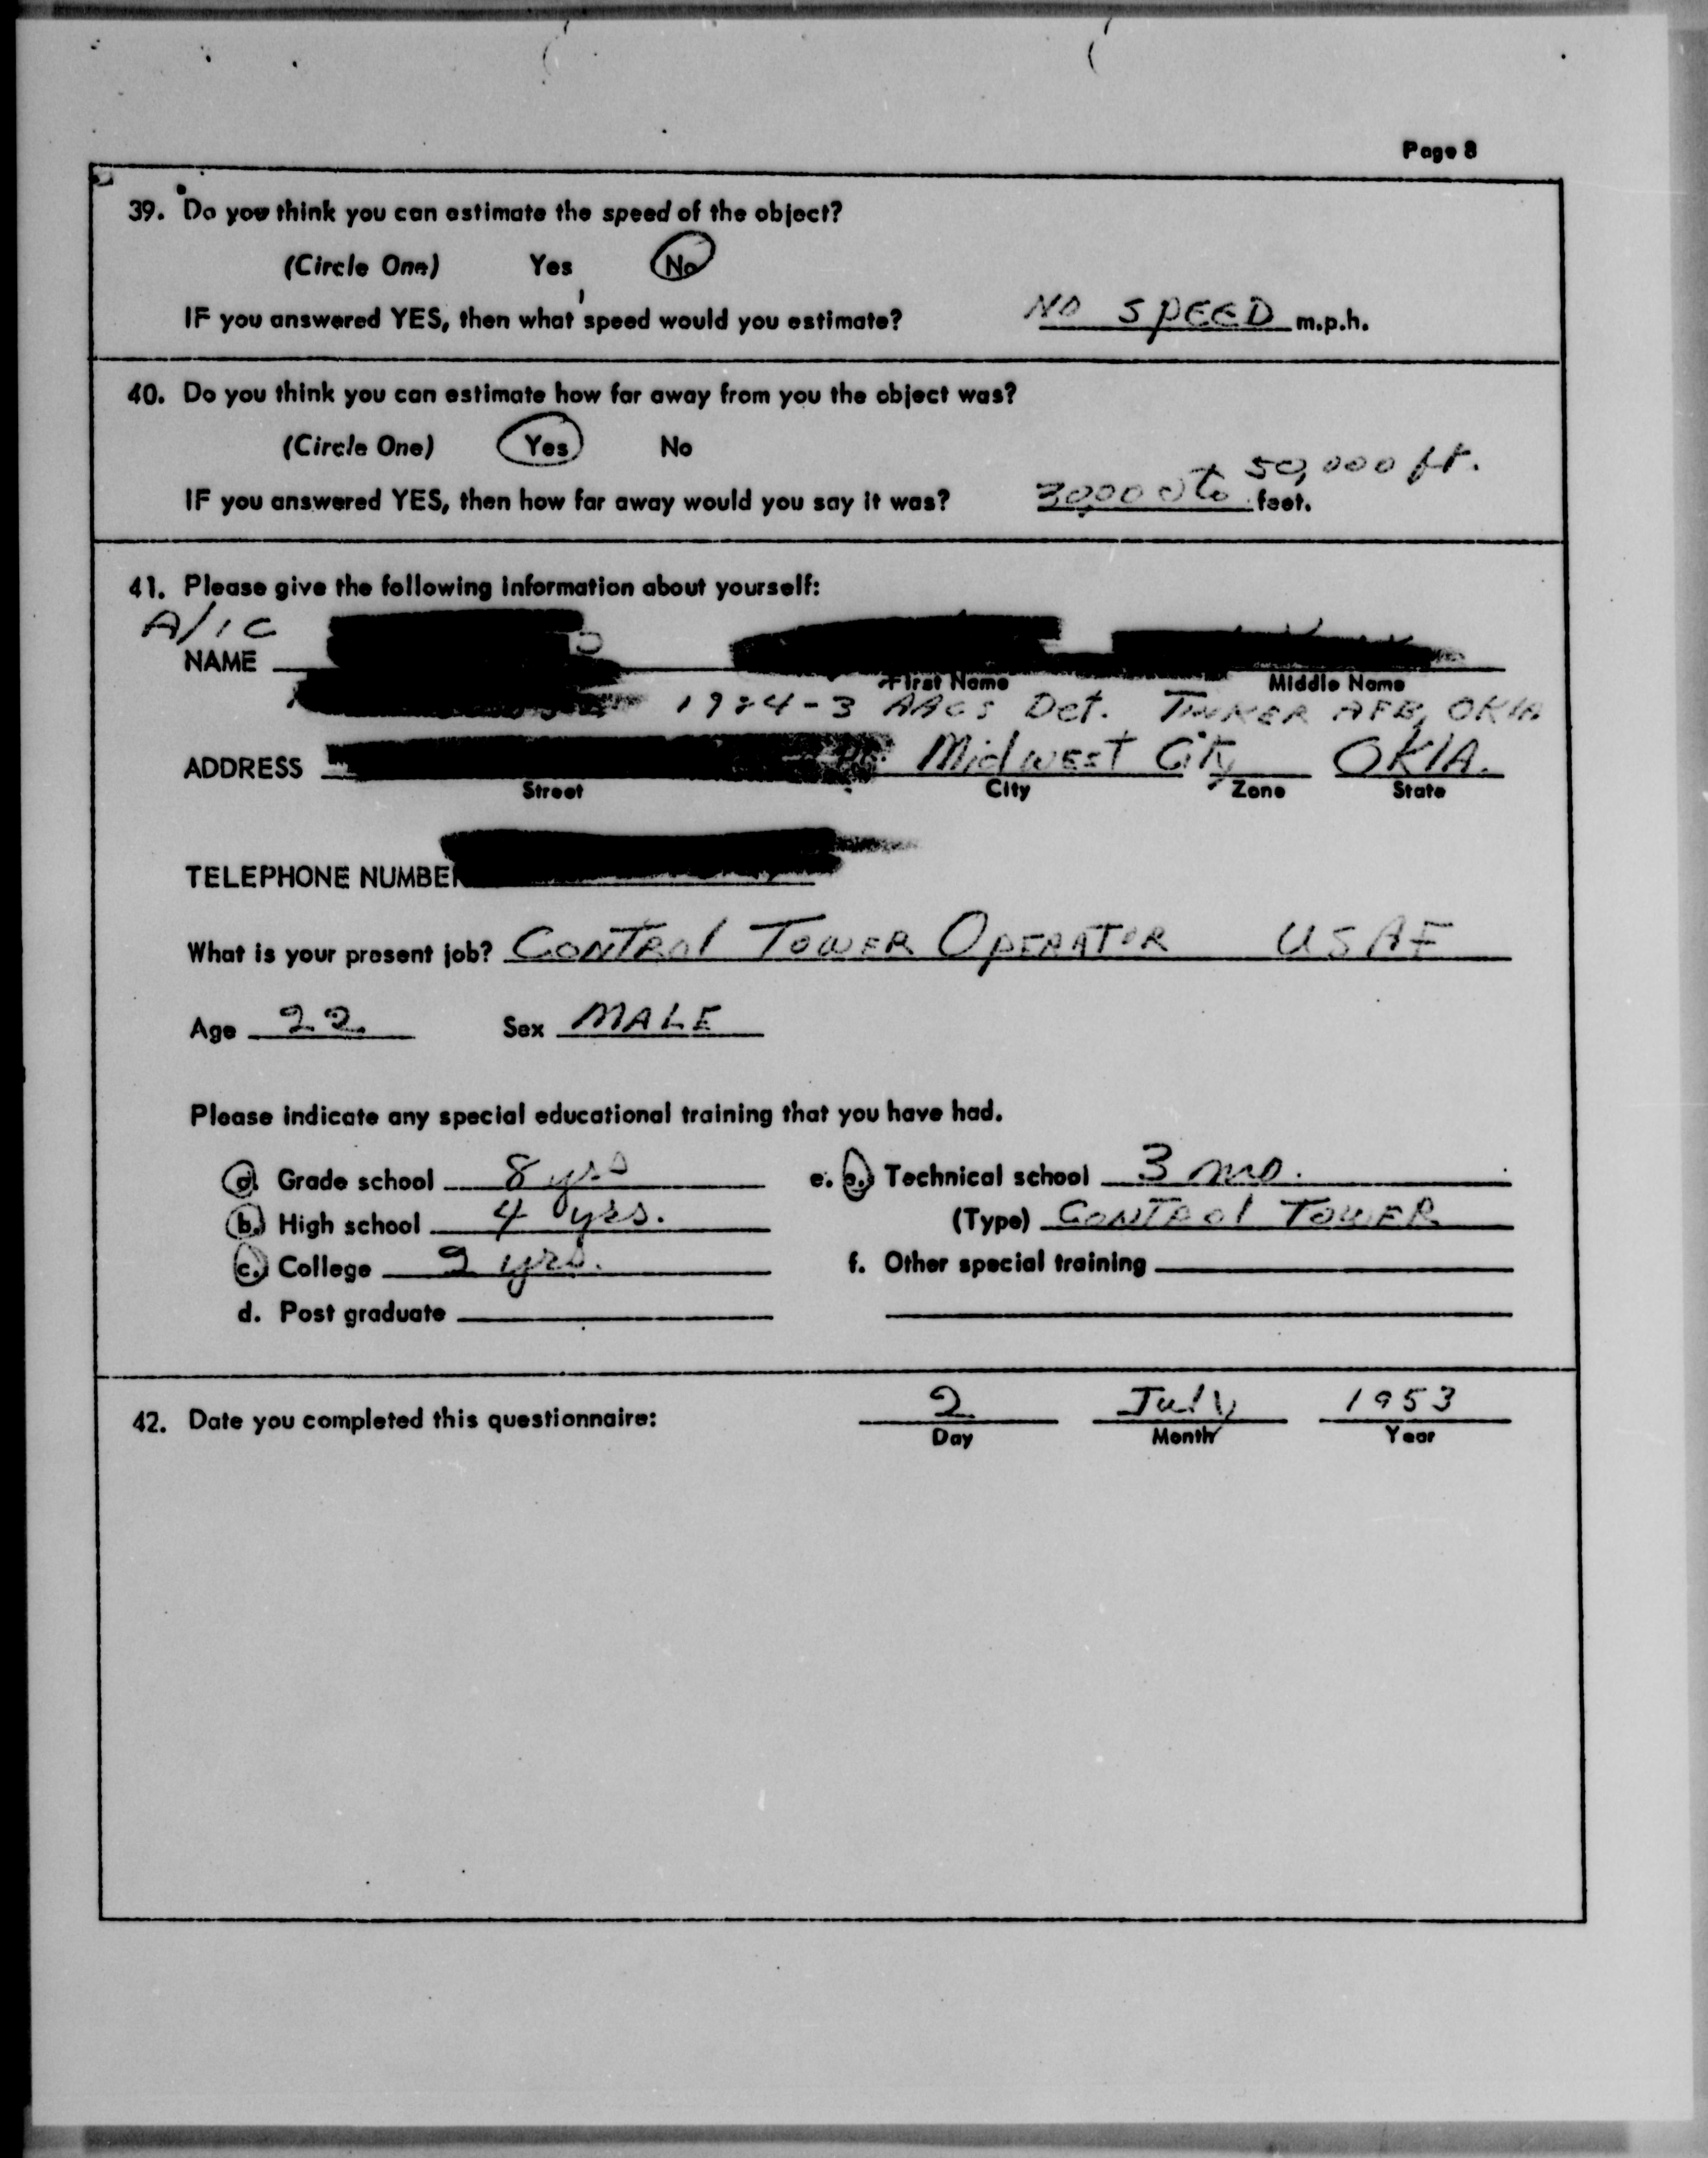 Page 8
39. Do you think you can estimate the speed of the object?
(Circle One) Yes No
IF you answered YES, then what speed would you estimate? NO SPEED m.p.h.
40. Do you think you can estimate how far away from you the object was?
(Circle One) Yes No
50,000 ft.
IF you answered YES, then how far away would you say it was? 30,000 to feet.
41. Please give the following information about yourself:
A/1C
NAME
First Name Middle Name
AACS Det. TINKER AFB, OKlA
ADDRESS MidWEST City OKlA.
Street City Zone State
TELEPHONE NUMBER
What is your present job? CONTROl TOWER OPERATOR USAF
Age 22 Sex MALE
Please indicate any special educational training that you have had.
a. Grade school 8 yrs e. Technical school 3 mo.
b. High school 4 yrs. (Type) CONTROl TOWER
c. College 2 yrs. f. Other special training
d. Post graduate
42. Date you completed this questionnaire: 2 July 1953
Day Month Year